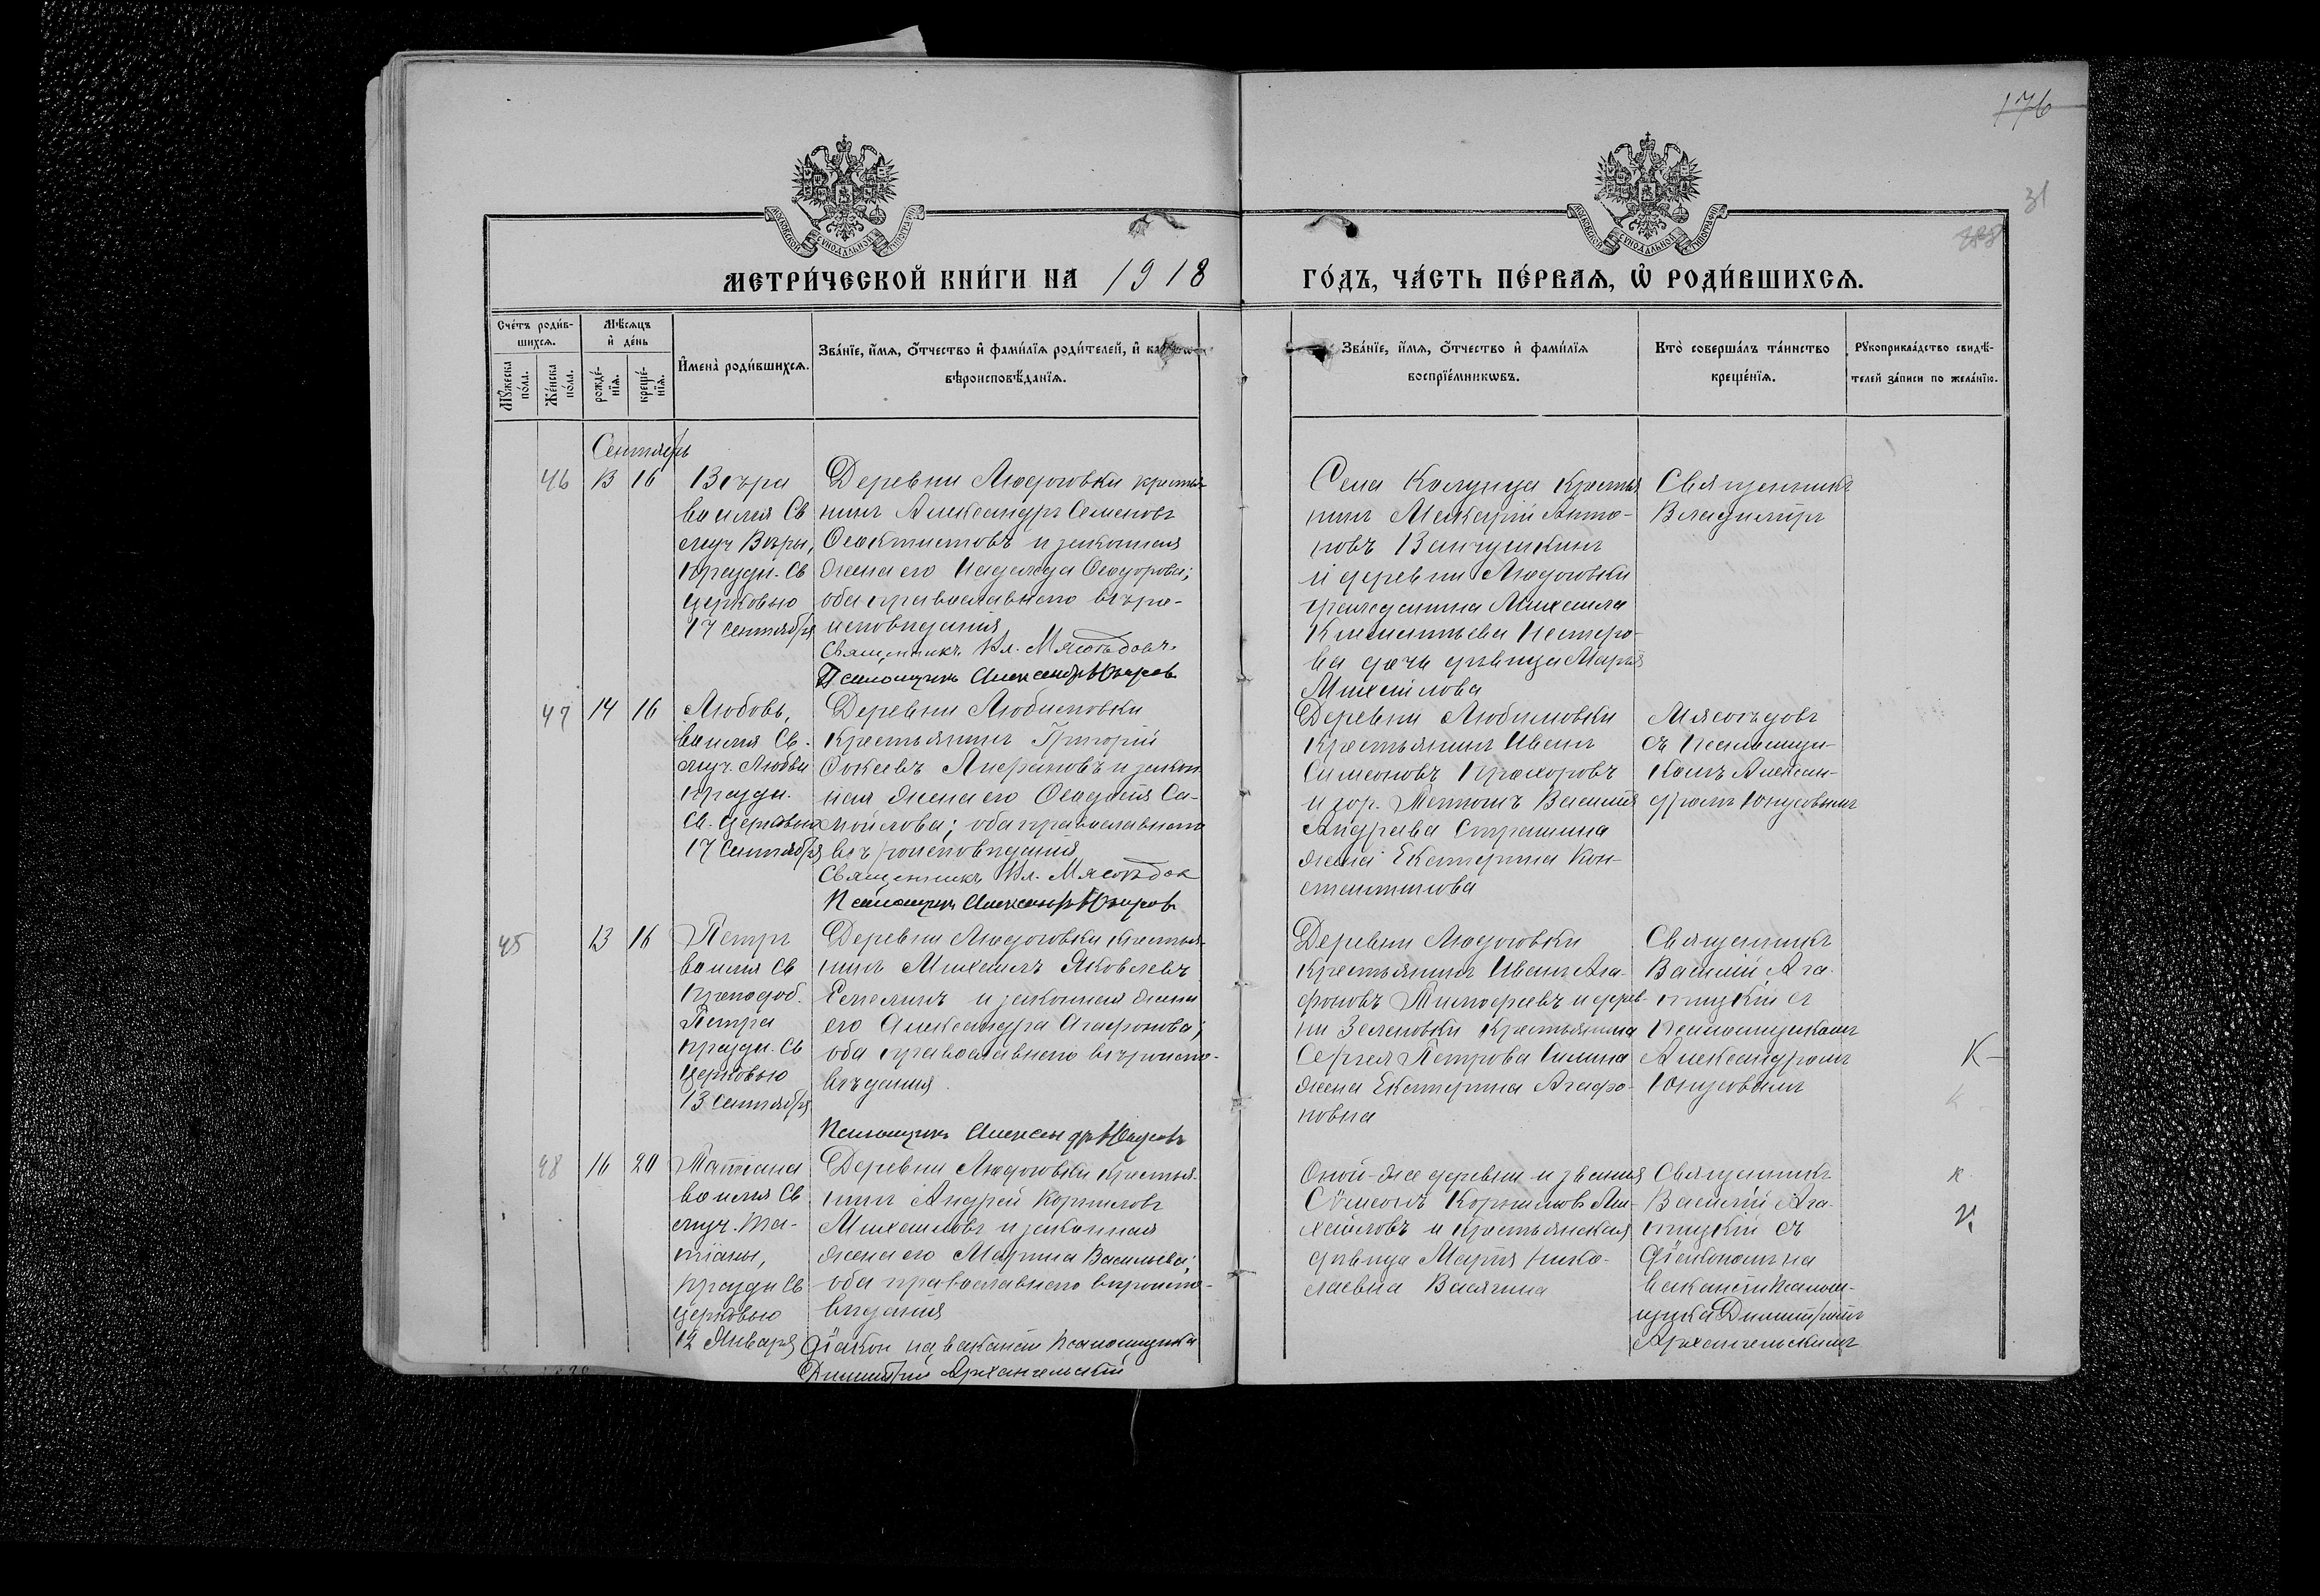 176
31
МОСКОВСКОЙ СѴНОДАЛЬНОЙ ТИПОГРАФІИ
МОСКОВСКОЙ СѴНОДАЛЬНОЙ ТИПОГРАФІИ
МЕТРИ́ЧЕСКОЙ КНИ́ГИ НА 1918 ГО́ДЪ, ЧА́СТЬ ПЕ́РВАѦ, Ѡ҆ РОДИ́ВШИХСѦ.
Сче́тъ роди́в-
шихсѧ.
Мѹ́жеска по́ла.
Же́нска по́ла.
Мѣ́сѧцъ
и҆ де́нь
рожде́-
нїѧ.
креще́-
нїѧ.
И҆мена̀ роди́вшихсѧ.
Зва́нїе, и҆́мѧ, ѻ҆́тчество и҆ фами́лїѧ роди́телей, и҆
вѣроисповѣ́данїѧ.
Зва́нїе, и҆́мѧ, ѻ҆́тчество и҆ фами́лїѧ
воспрїе́мникѡвъ.
Кто̀ соверша́лъ та́инство
креще́нїѧ.
Рѹкоприкла́дство свидѣ́-
телей за́писи по жела́нїю.
Сентябрь
46 13 16
Вѣра
во имя Св
муч Вѣры,
празди. Св
церковью
17 Сентября
Деревни крестья-
нинъ Александръ Семеновъ
Ѳеоктистовъ и законная
жена его Надежда Ѳеодорова;
оба православнаго вѣро-
исповѣданія
Священникъ Вл. Мясоѣдовъ
Псаломщикъ Александръ
Села крестья
нинъ Макарій Анто-
новъ
и деревни
гражданина Михаила
Климентьева Нестеро-
ва дочь дѣвица Марія
Михаилова
Священникъ
Владиміръ
47 14 16
Любовь,
во имя Св.
муч. Любви
празди.
Св. церковью
17 Сентября
Деревни Любимовки
крестьянинъ Григорій
и закон
ная жена его Ѳеодосія Са-
мойлова; оба православнаго
вѣроисповѣданія
Священникъ Вл. Мясоѣдов
Псаломщикъ Александръ
Деревни Любимовки
крестьянинъ Иванъ
Симеоновъ Прохоровъ
и гор. Василія
Андреева
жена Екатерина Кон-
стантинова
Мясоѣдовъ
съ псаломщи-
комъ Алексан-
дромъ
45 13 16
Петръ
во имя Св
Преподоб.
Петра
празди. Св
церковью
13 Сентября
Деревни крестья-
нинъ Михаилъ Яковлевъ
и законная жена
его Александра Агафонова;
оба православнаго вѣроиспо-
вѣданія.
Псаломщикъ Александръ
Деревни
крестьянинъ Иванъ Ага-
фоновъ Тимофеевъ и дерев-
ни Зеленовки крестьянина
Сергея Петрова
жена Екатерина Агафо-
новна
Священникъ
Василій Ага-
питскій съ
Псаломщикомъ
Александромъ
К
48 16 20
Татіана
во имя Св
муч. Та-
тіаны,
празди Св
церковью
12 Января
Деревни крестья-
нинъ Андрей Корниловъ
Михаиловъ и законная
жена его Марина Васильева;
оба православнаго вѣроиспо-
вѣданія
Діаконъ на вакансіи псаломщика
Димитрій Архангельскій
Оной-же деревни и званія
Сѵмеонъ Корниловъ Ми-
хаиловъ и крестьянская
дѣвица Марія Нико-
лаевна
Священникъ
Василій Ага-
питскій съ
Діакономъ на
вакансіи псалом-
щика Димитріемъ
Архангельскимъ
к